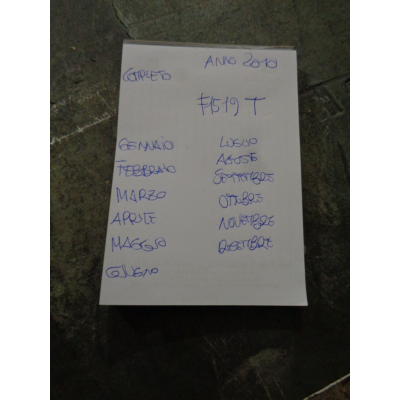 ANNO 2010
COMPLETO
F1519 T
GENNAIO
FEBBRAIO
MARZO
APRILE
MAGGIO
GIUGNO
LUGLIO
AGOSTO
SETTEMBRE
OTTOBRE
NOVEMBRE
DICEMBRE